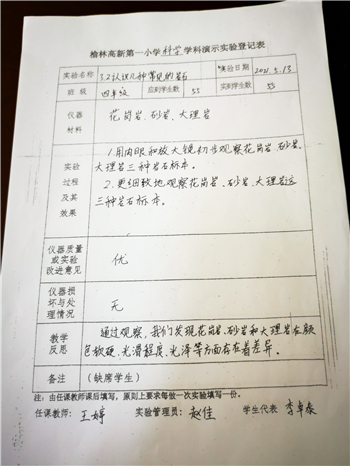 榆林高新第一小学科学学科演示实验登记表
实验名称 3.2认识几种常见的岩石 实验日期 2021.5.13
班级 四年级 应到学生数 55 实到学生数 55
仪器材料 花岗岩、砂岩、大理岩
实验过程及其效果
1.用肉眼和放大镜初步观察花岗岩、砂岩、
大理岩三种岩石标本。
2.更细致地观察花岗岩、砂岩、大理岩这
三种岩石标本。
仪器质量或实验改进意见 优
仪器损坏与处理情况 无
教学反思
通过观察,我们发现花岗岩、砂岩和大理岩在颜
色、软硬、光滑程度、光泽等方面存在着差异。
备注 (缺席学生)
注:由任课教师课后填写,原则上要求每做一次实验填写一份。
任课教师:王婷 实验管理员:赵佳 学生代表 李卓泰